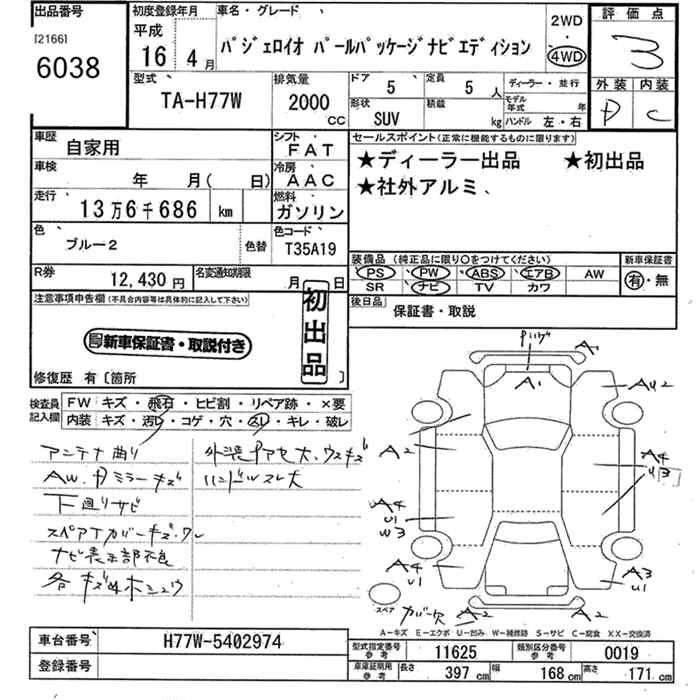 出品番号
[2166]
6038
初度登録年月
平成
16 年 4 月
車名・グレード
パジェロイオ パールパッケージナビエディション
2WD
・
4WD
評価点
3
外装 内装
D C
型式
TA-H77W
排気量
2000
CC
ドア 5
定員 5 人
形状 SUV
積載 kg
ディーラー・並行
モデル年式 年
ハンドル 左・右
車歴 自家用
シフト FAT
車検 年 月( 日)
冷房 AAC
走行 13万6千686 km
燃料 ガソリン
色 ブルー2 色替
色コード T35A19
R券 12,430 円
名変通知期限 月 日
セールスポイント(正常に機能するものに限ります)
★ディーラー出品 ★初出品
★社外アルミ、
装備品 (純正品に限り○をつけてください)
PS PW ABS エアB AW
SR ナビ TV カワ
新車保証書
有・無
後日品
保証書・取説
注意事項申告欄(不具合内容等は具体的に記入して下さい)
新車保証書・取説付き
初出品
修復歴 有〔箇所 〕
検査員記入欄
FW キズ・飛石・ヒビ割・リペア跡・×要
内装 キズ・汚レ・コゲ・穴・スレ・キレ・破レ
アンテナ曲り
AW.Dミラーキズ
下回りサビ
スペアTカバーキズ・ワレ
ナビ表示部不良
各キズ凹ホシュウ
ハンドルスレ大
A1
A1
AU2
A2
A4
U3
A4
U1
W3
A4
U1
A3
U1
スペア
カバー欠
A2
A2
A-キズ E-エクボ U-凹み W-補修跡 S-サビ C-腐食 XX-交換済
車台番号 H77W-5402974
登録番号
型式指定番号 参考 11625
類別区分番号 参考 0019
車庫証明用 参考 長さ 397 cm 幅 168 cm 高さ 171 cm